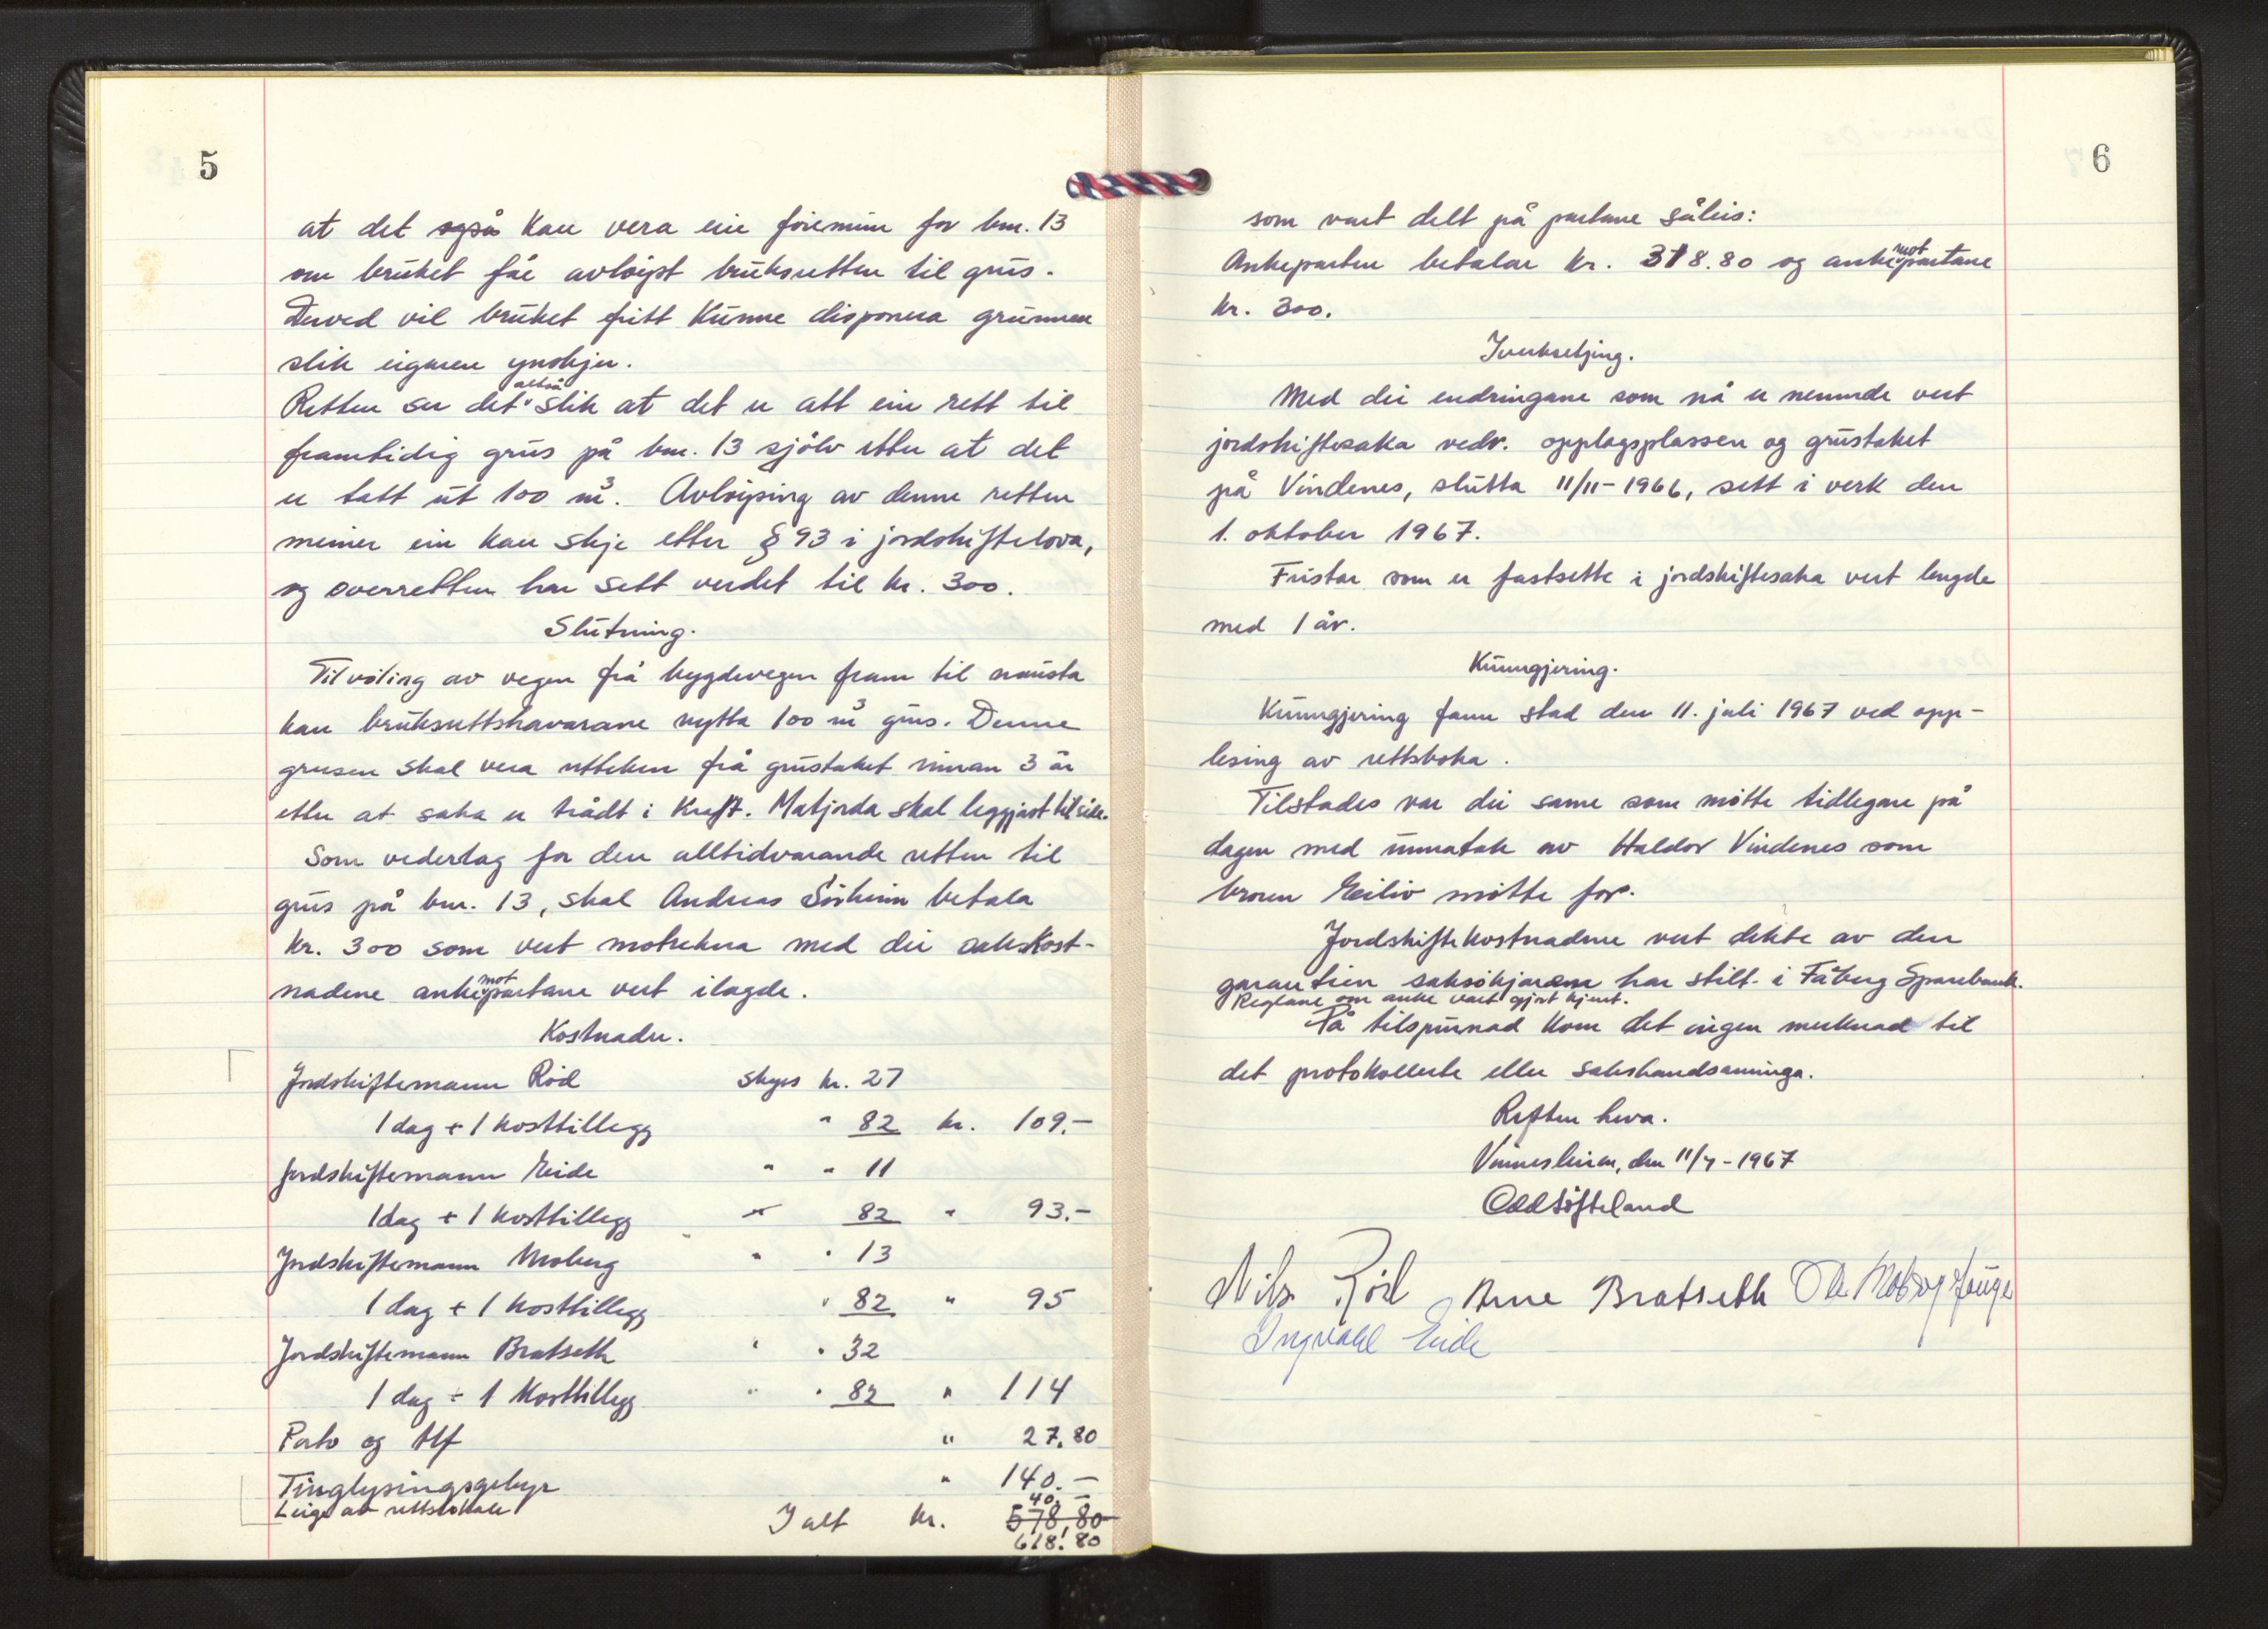 5
at det også kan vera ein föremun for bnr. 13
om bruket får avløyst bruksretten til grus.
Derved vil bruket fritt kunne disponera grunnen
slik eigaren ynskjer.
Retten ser det altså slik at det er att ein rett til
framtidig grus på bnr. 13 sjølv etter at det
er tatt ut 100 m³. Avløysing av denne retten
meiner ein kan skje etter § 93 i jordskiftelova,
og overretten har sett verdet til kr. 300.
Slutning.
Til vøling av vegen frå bygdevegen fram til nausta
kan bruksrettshavarane nytta 100 m³ grus. Denne
grusen skal vera utteken frå grustaket innan 3 år
etter at saka er trådt i kraft. Matjorda skal leggjast til side.
Som vederlag for den alltidvarande retten til
grus på bnr. 13, skal Andreas Sörheim betala
kr. 300 som vert motrekna med dei sakskost-
nadene ankemotpartane vert ilagde.
Kostnader.
Jordskiftemann Röd skyss kr. 27
1 dag + 1 kosttillegg " 82 kr. 109.-
Jordskiftemann Eide " " 11
1 dag + 1 kosttillegg " 82 " 93.-
Jordskiftemann Moberg " " 13
1 dag + 1 kosttillegg " 82 " 95
Jordskiftemann Bratseth " " 32
1 dag + 1 kosttillegg " " 82 " 114
Porto og tlf " 27.80
Tinglysingsgebyr " 140.-
Leige av rettslokale 40.-
I alt kr. 578,80
618.80
6
som vart delt på partane såleis:
Ankeparten betalar kr. 318.80 og ankemotpartane
kr. 300.
Iverksetjing.
Med dei endringane som nå er nemnde vert
jordskiftesaka vedr. opplagsplassen og grustaket
på Vindenes, slutta 11/11-1966, sett i verk den
1. oktober 1967.
Fristar som er fastsette i jordskiftesaka vert lengde
med 1 år.
Kunngjering.
Kunngjering fann stad den 11. juli 1967 ved opp-
lesing av rettsboka.
Tilstades var dei same som møtte tidlegare på
dagen med unnatak av Haldor Vindenes som
broren Eiliv møtte for.
Jordskiftekostnadene vert dekte av den
garantien saksøkjarane har stilt i Fåberg Sparebank.
Reglane om anke vart gjort kjent.
På tilspurnad kom det ingen merknad til
det protokollerte eller sakshandsaminga.
Retten heva.
Vinnesleiren, den 11/7-1967
Odd Söfteland
Nils Röd Arne Bratseth Ole
Ingvald Eide